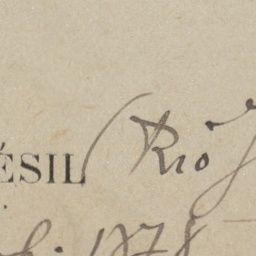 ÉSIL (Rio J
. 1878